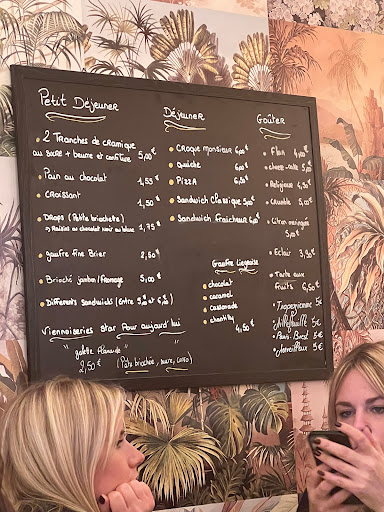 Petit Déjeuner
• 2 Tranches de cramique
au sucre + beurre et confiture 5,00€
• Pain au chocolat 1,55 €
• croissant 1,50 €
• DROPS (Petite briochette)
Raisins au chocolat noir ou blanc 1,75 €
• gaufre fine Brier 2,60 €
• Brioché jambon/fromage 5,00 €
• Différents Sandwichs (Entre
Viennoiseries Star Pour aujourd'hui
" galette
2,50 € (Pâte briochée, sucre,
Déjeuner
• Croque monsieur 6,00 €
• Quiche 6,00 €
• Pizza 6,50 €
• Sandwich Classique 5,00 €
• Sandwich Fraîcheur 6,00 €
Gaufre Liégeoise
• chocolat
• caramel
• cassonade
• chantilly
4,50 €
Goûter
• Flan 4,00 €
• cheese-cake 5,50 €
• Religieuse 4,50 €
• Crumble 5,00 €
• Citron meringuée
5,00 €
• Eclair 3,90 €
• Tarte aux
fruits 6,50 €
• Tropézienne 5€
• Millefeuille 5€
• Paris-Brest 5€
• Merveilleux 5€